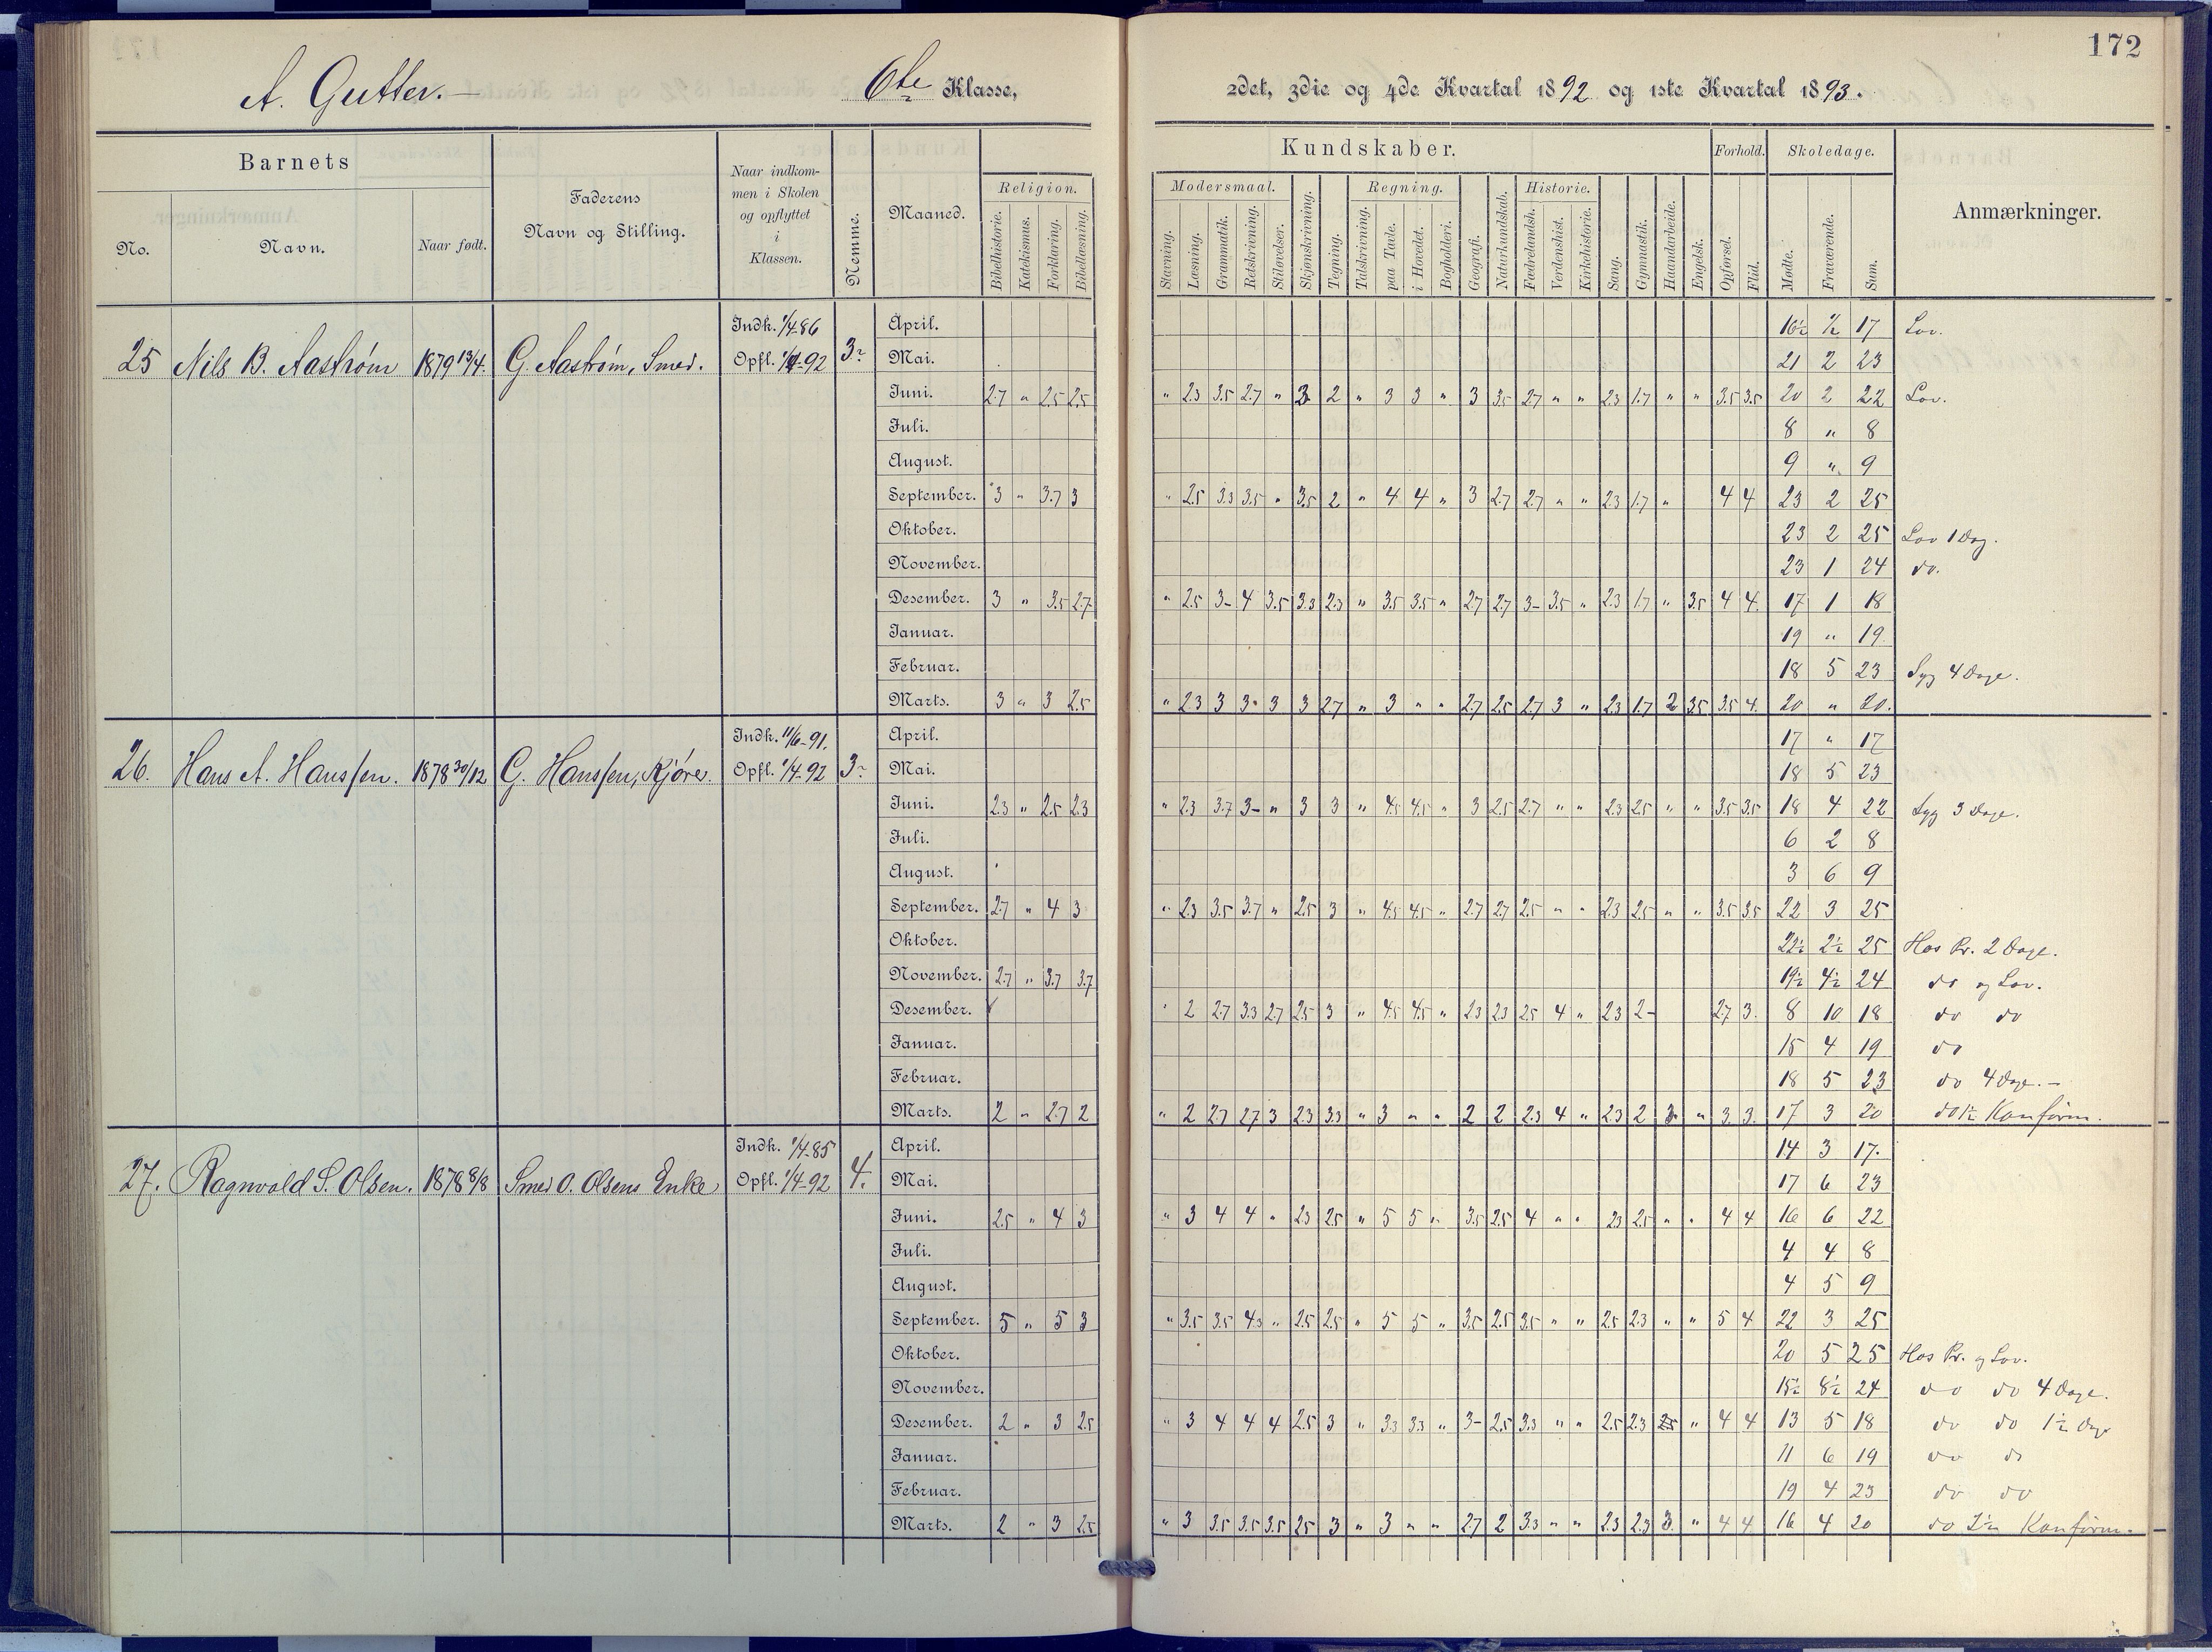 172
A. Gutter. 6te Klasse, 2det, 3die og 4de Kvartal 1892 og 1ste Kvartal 1893.
Barnets
No.
Navn.
Naar født.
Faderens
Navn og Stilling.
Naar indkom-
men i Skolen
og opflyttet
i
Klassen.
Nemme.
Maaned.
Kundskaber.
Religion.
Bibelhistorie. Katekismus. Forklaring. Bibellæsning.
Modersmaal.
Stavning. Læsning. Grammatik. Retskrivning. Stiløvelser.
Skjønskrivning. Tegning.
Regning.
Talskrivning. paa Tavle. i Hovedet. Bogholderi.
Geografi. Naturkundskab.
Historie.
Fædrelandsh. Verdenshist. Kirkehistorie.
Sang. Gymnastik. Haandarbeide. Engelsk.
Forhold.
Opførsel. Flid.
Skoledage.
Mødte. Fraværende. Sum.
Anmærkninger.
25 Nils B. Aastrøm 1879 13/4. G. Aastrøm, Smed. Indk. 1/4 86 Opfl. 1/4-92 3-
April. 16½ ½ 17 Lov.
Mai. 21 2 23
Juni. 2.7 " 2.5 2.5 " 2.3 3.5 2.7 " 3 2 " 3 3 " 3 3.5 2.7 " " 2.3 1.7 " " 3.5 3.5 20 2 22 Lov.
Juli. 8 " 8
August. 9 " 9
September. 3 " 3.7 3 " 2.5 3.3 3.5 " 3.5 2 " 4 4 " 3 2.7 2.7 " " 2.3 1.7 " 4 4 23 2 25
Oktober. 23 2 25 Lov 1 Dag.
November. 23 1 24 do.
Desember. 3 " 3.5 2.7 " 2.5 3- 4 3.5 3.3 2.3 " 3.5 3.5 " 2.7 2.7 3- 3.5 " 2.3 1.7 " 3.5 4 4. 17 1 18
Januar. 19 " 19
Februar. 18 5 23 Syg 4 Dage.
Marts. 3 " 3 2.5 " 2.3 3 3- 3 3 2.7 " 3 " " 2.7 2.5 2.7 3 " 2.3 1.7 2 3.5 3.5 4. 20 " 20.
26. Hans A. Hanssen. 1878 30/12 G. Hanssen, Kjører. Indk. 11/6-91. Opfl. 1/4-92 3-
April. 17 " 17
Mai. 18 5 23
Juni. 2.3 " 2.5 2.3 " 2.3 3.7 3- " 3 3 " 4.5 4.5 " 3 2.5 2.7 " " 2.3 2.5 " " 3.5 3.5 18 4 22 Syg 3 Dage.
Juli. 6 2 8
August. 3 6 9
September. 2.7 " 4 3 " 2.3 3.5 3.7 " 2.5 3 " 4.5 4.5 " 2.7 2.7 2.5 " " 2.3 2.5 " " 3.5 3.5 22 3 25
Oktober. 22½ 2½ 25 Hos Pr. 2 Dage.
November. 2.7 " 3.7 3.7 19½ 4½ 24 do og Lov.
Desember. " 2 2.7 3.3 2.7 2.5 3 " 4.5 4.5 " 2.3 2.3 2.5 4 " 2.3 2- 2.7 3. 8 10 18 do do
Januar. 15 4 19 do
Februar. 18 5 23 do 4 Dage. -
Marts. 2 " 2.7 2 " 2 2.7 2.7 3 2.3 3.3 " 3 " " 2 2 2.3 4 " 2.3 2 3 " 3. 3. 17 3 20 do 1½ Konfirm.
27. Ragnvald S. Olsen. 1878 8/8 Smed O. Olsens Enke Indk. 1/4-85 Opfl. 1/4-92 4.
April. 14 3 17.
Mai. 17 6 23
Juni. 2.5 " 4 3 " 3 4 4 " 2.3 2.5 " 5 5 " 3.5 2.5 4 " " 2.3 2.5 " " 4 4 16 6 22
Juli. 4 4 8
August. 4 5 9
September. 5 " 5 3 " 3.5 3.5 4.3 " 2.5 2.5 " 5 5 " 3.5 2.5 3.5 " " 2.5 2.3 " " 5 4 22 3 25
Oktober. 20 5 25 Hos Pr. og Lov.
November. 15½ 8½ 24 do do 4 Dage.
Desember. 2 " 3 2.5 " 3 4 4 4 2.5 3 " 3.3 3.3 " 3- 2.5 3.3 " " 2.5 2.3 2.5 " 4 4 13 5 18 do do 1½ Dage
Januar. 11 6 19 do do
Februar. 19 4 23 do do
Marts. 2 " 3 2.5 " 3 3.5 3.5 3.5 2.5 3 " 3 " " 2.7 2 3.3 " " 2.3 2.3 3. " 4 4. 16 4 20 do 2½ Konfirm.